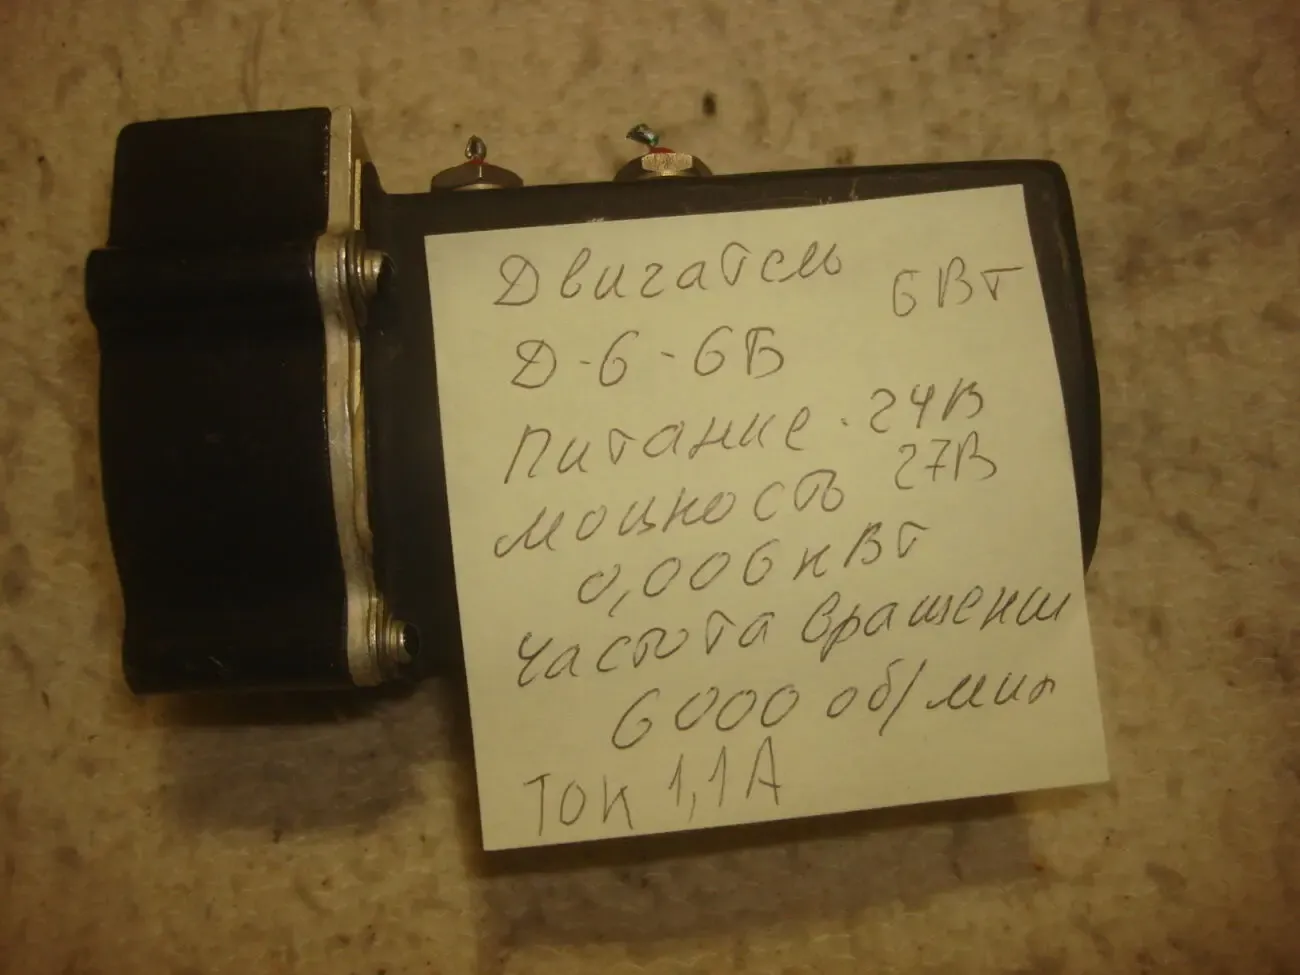 Двигатель 6Вт
Д-6-6Б
Питание. 24В
27В
мощность
0,006 кВт
Частота вращении
6000 об/мин
ТОК 1,1А